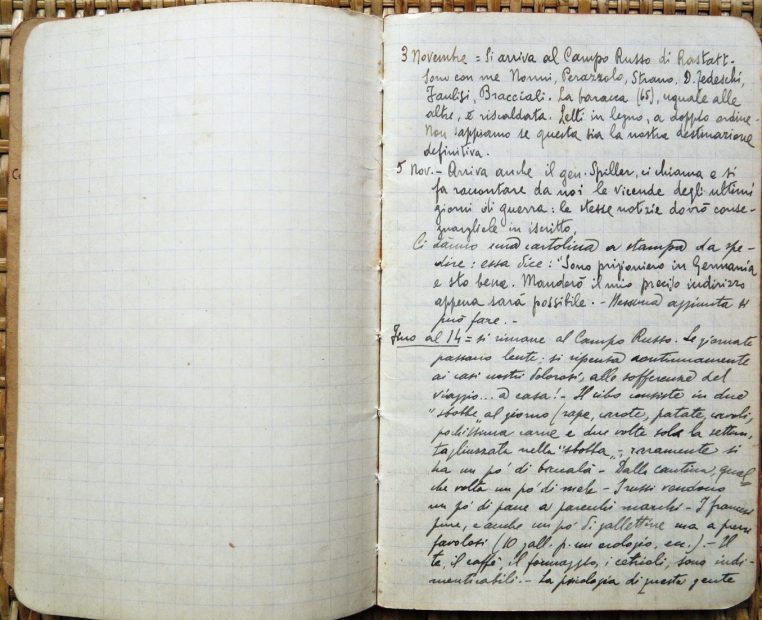 3 Novembre = Si arriva al Campo Russo di Rastatt.
Sono con me Nonni, Perazzolo, Strano, D. Tedeschi,
Bracciali. La baracca (65), uguale alle
altre, è riscaldata. Letti in legno, a doppio ordine.
Non sappiamo se questa sia la nostra destinazione
definitiva.
5 Nov. - Arriva anche il gen. Spiller, ci chiama e si
fa raccontare da noi le vicende degli ultimi
giorni di guerra: le stesse notizie dovrò conse-
gnargliele in iscritto.
Ci danno una cartolina a stampa da spe-
dire: essa dice: "Sono prigioniero in Germania
e sto bene. Manderò il mio preciso indirizzo
appena sarà possibile. - Nessuna aggiunta si
può fare. -
Fino al 14 = si rimane al Campo Russo. Le giornate
passano lente: si ripensa continuamente
ai casi nostri dolorosi, alle sofferenze del
viaggio... a casa! - Il cibo consiste in due
"sbobbe" al giorno (rape, carote, patate, cavoli,
pochissima carne e due volte sola la settim.
tagliuzzata nella "sbobba" - raramente si
ha un pó di baccalà - Dalla cantina, qual
che volta un pó di mele - I russi vendono
un pó di pane a parecchi marchi - I francesi
pure, e anche un pó di gallettine ma a prezzi
favolosi (10 gall. p. un orologio, ecc.) - Il
te, il caffè, il formaggio, i cetrioli, sono indi-
menticabili. - La psicologia di questa gente